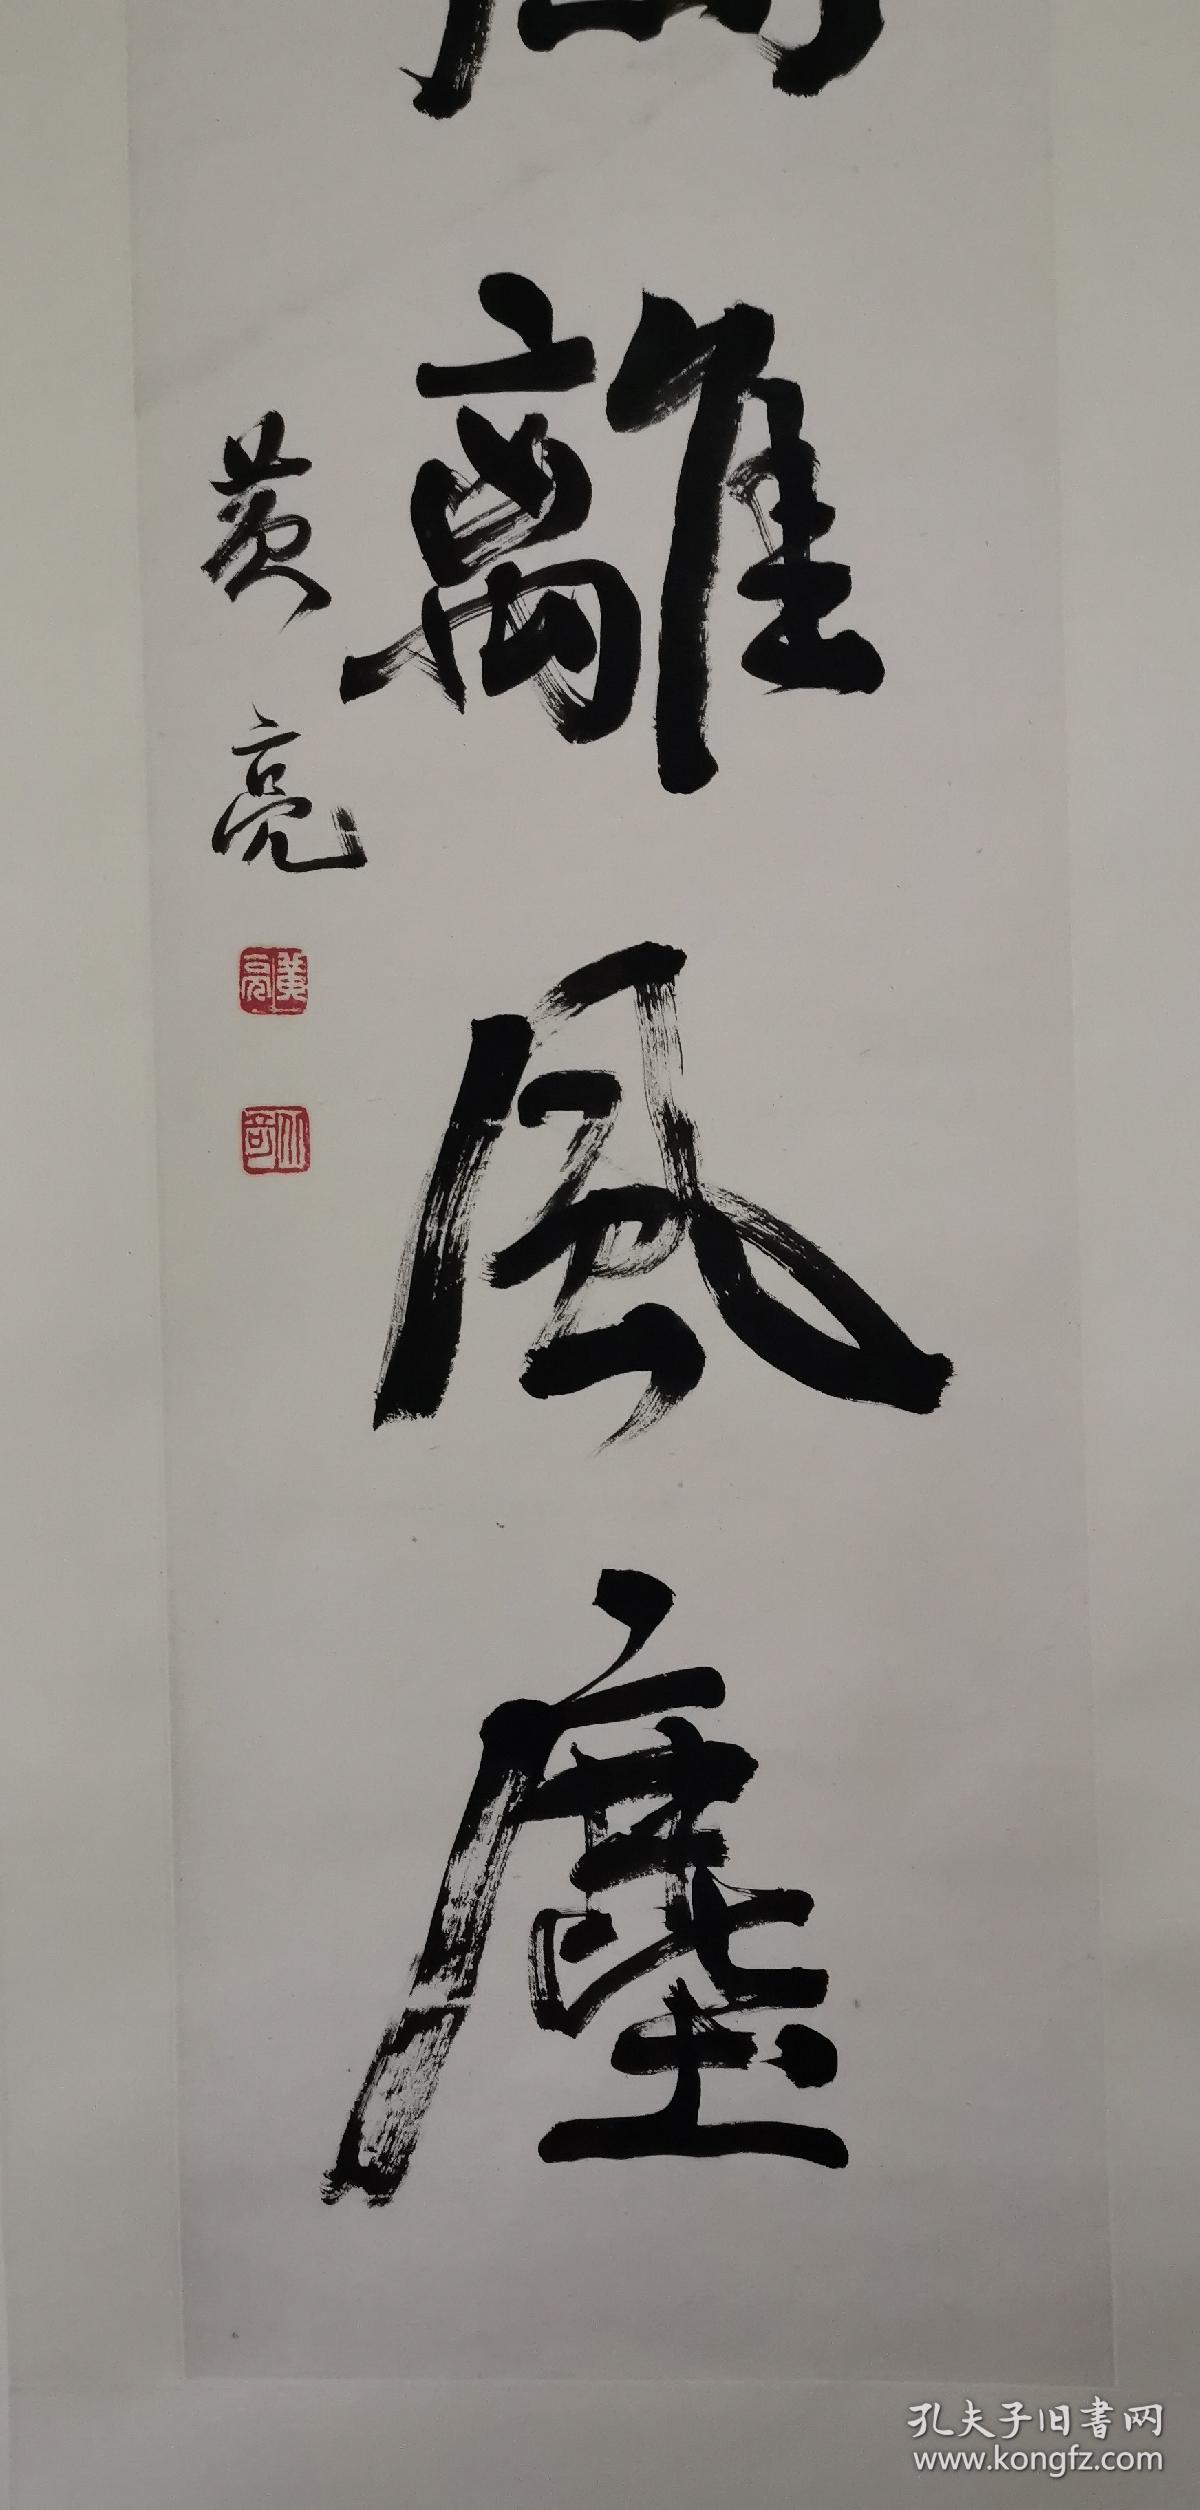 離風塵
黄亮
黄亮
孔夫子旧書网
www.kongfz.com